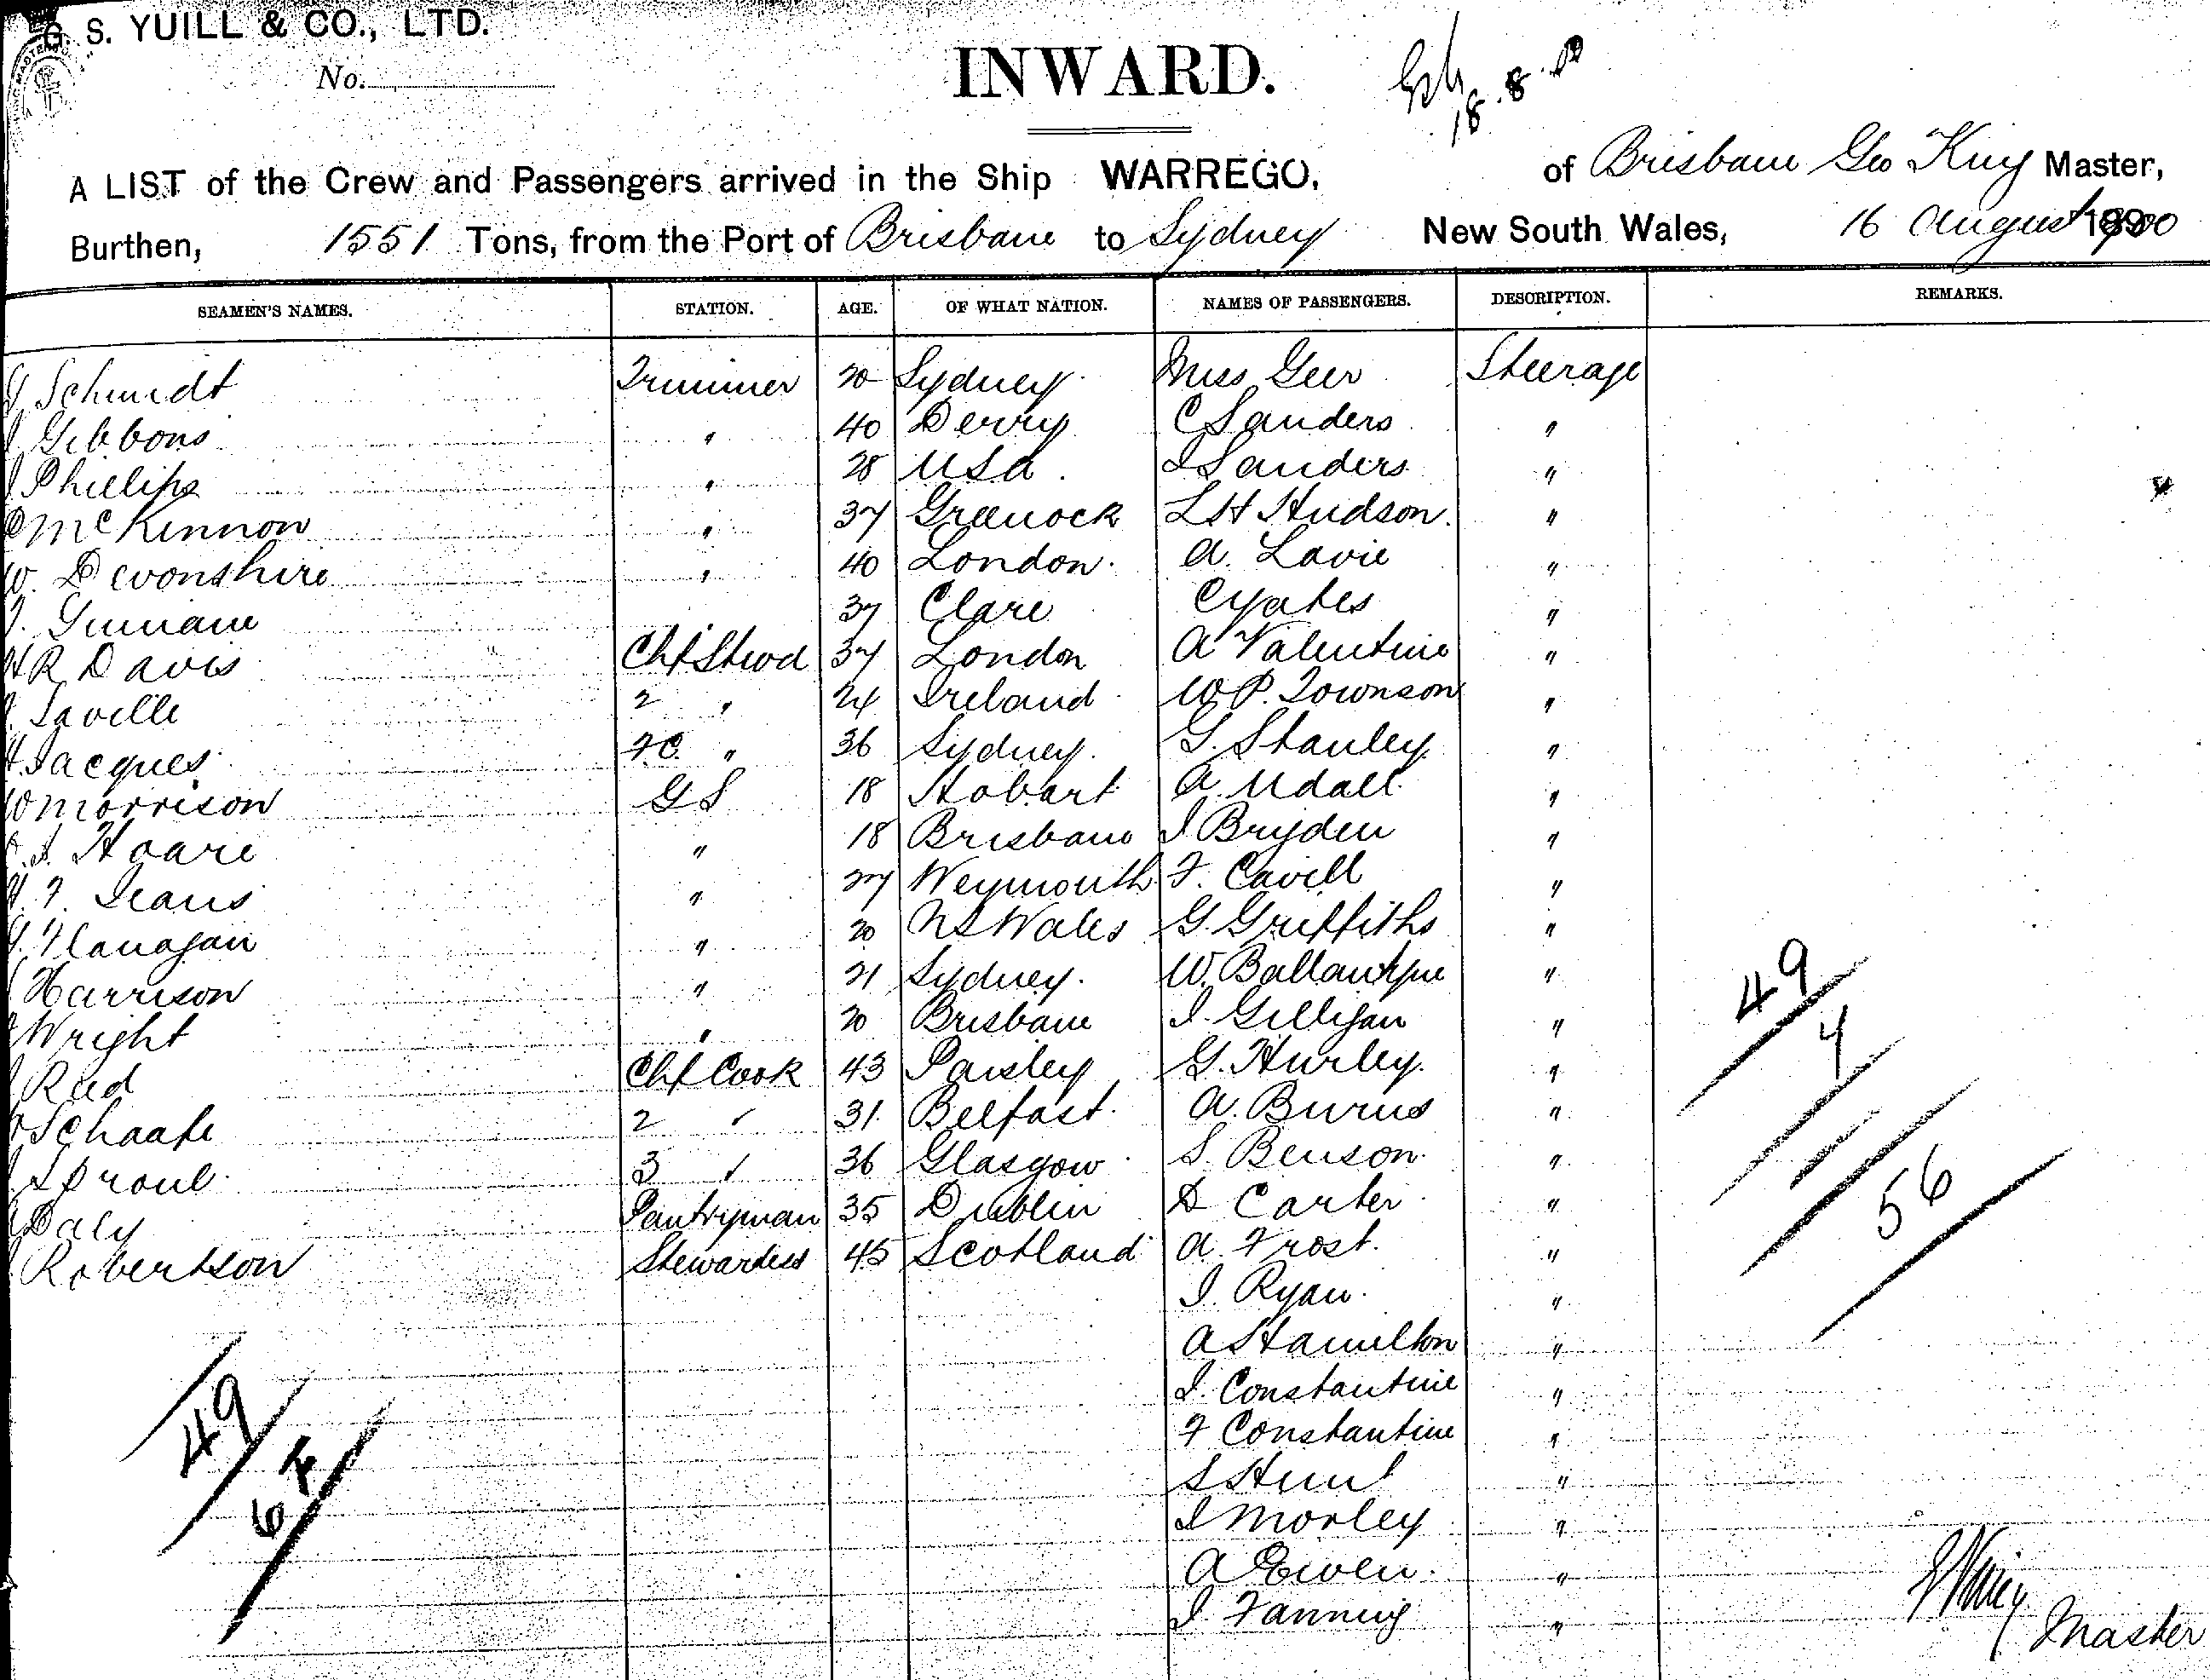 G. S. YUILL & CO., LTD.
No.
INWARD.
18.8.00
A LIST of the Crew and Passengers arrived in the Ship WARREGO, of Brisbane Geo King Master,
Burthen, 1551 Tons, from the Port of Brisbane to Sydney New South Wales, 16 August 1900
SEAMEN'S NAMES. STATION. AGE. OF WHAT NATION. NAMES OF PASSENGERS. DESCRIPTION. REMARKS.
Schmidt Trimmer 20 Sydney Miss Geer Steerage
Gibbons " 40 Derry C Sanders "
Phillips " 28 USA J Sanders "
McKinnon " 37 Greenock L H Hudson "
W. Devonshire " 40 London A. Lavie "
37 Clare C Yates "
H R Davis Chf Stwd 37 London A Valentine "
Saville 2 " 24 Ireland W P. Townson "
H. Jacques F.C. " 36 Sydney G. Stanley "
W Morrison G S 18 Hobart A. Udall "
Hoare " 18 Brisbane J Bryden "
H. F. Jeans " 27 Weymouth F. Cavill "
Flanagan " 20 N S Wales G. Griffiths "
Harrison " 21 Sydney W. Ballantyne "
Wright " 20 Brisbane J. Gilligan "
Reid Chf Cook 43 Paisley G. Hurley "
Schaafe 2 " 31 Belfast A. Burns "
Sproul 3 " 36 Glasgow S. Benson "
Daly Pantryman 35 Dublin D Carter "
Robertson Stewardess 45 Scotland A. Frost "
J. Ryan "
A Hamilton "
J. Constantine "
F Constantine "
S Hunt "
J Morley "
A Ewen "
J. Fanning "
49
4
56
49
64
Master